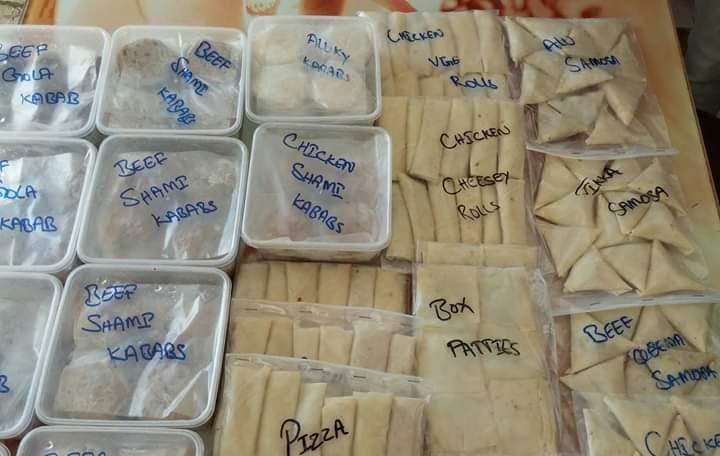 BEEF
GOLA
KABAB
BEEF
SHAMI
KABAB
ALUKY
KABABS
CHICKEN
VEGE
ROLLS
ALU
SAMOSA
GOLA
KABAB
BEEF
SHAMI
KABABS
CHICKEN
SHAMI
KABABS
CHICKEN
CHEESEY
ROLLS
TIKKA
SAMOSA
BEEF
SHAMI
KABABS
BOX
PATTIES
BEEF
SAMOSA
PIZZA
CHICKE